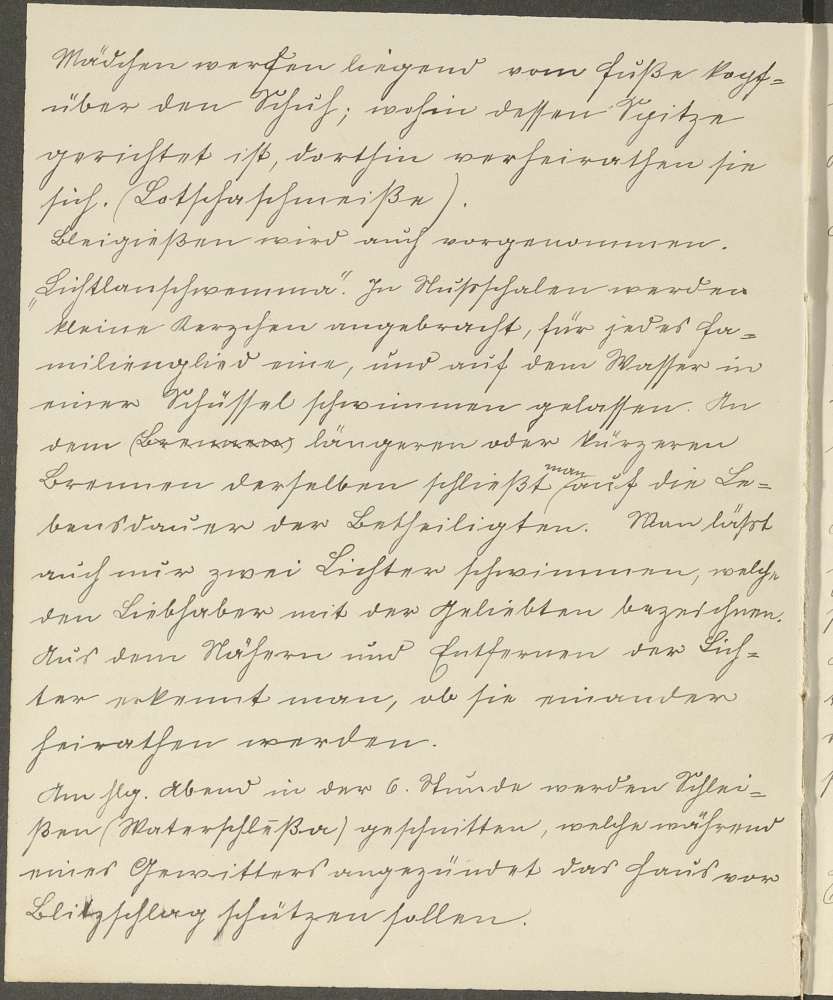 Mädchen werfen liegend vom Fuße kopf=
über den Schuh; wohin dessen Spitze
gerichtet ist, dorthin verheirathen sie
sich. (Lotschaschmeiße).
Bleigießen wird auch vorgenommen.
„Lichtlanschwemma“. In Nussschalen werden
kleine Kerzchen angebracht, für jedes Fa=
milienglied eine, und auf dem Wasser in
einer Schüssel schwimmen gelassen. An
dem (Brennen) längeren oder kürzeren
Brennen derselben schließt man auf die Le=
bensdauer der Betheiligten. Man läßt
auch nur zwei Lichter schwimmen, welche
den Liebhaber mit der Geliebten bezeichnen.
Aus dem Nähern und Entfernen der Lich=
ter erkennt man, ob sie einander
heirathen werden.
Am hlg. Abend in der 6. Stunde werden Schlei=
ßen (Waterschleßa) geschnitten, welche während
eines Gewitters angezündet das Haus vor
Blitzschlag schützen sollen.